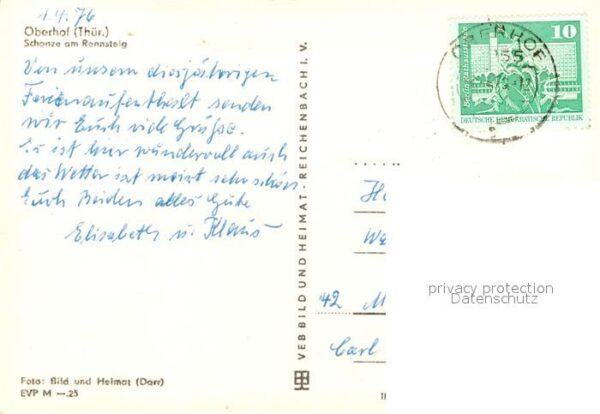 1.4.76
Oberhof (Thür.)
Schanze am Rennsteig
Von unserm diesjährigen
Ferienaufenthalt senden
wir Euch viele Grüße.
Es ist hier wundervoll auch
das Wetter ist meist sehr schön
Euch Beiden alles Gute
Elisabeth u. Klaus
Foto: Bild und Heimat (Darr)
EVP M —.25
VEB BILD UND HEIMAT · REICHENBACH I. V.
10
DEUTSCHE DEMOKRATISCHE REPUBLIK
OBERHOF
42 M
Carl
privacy protection
Datenschutz